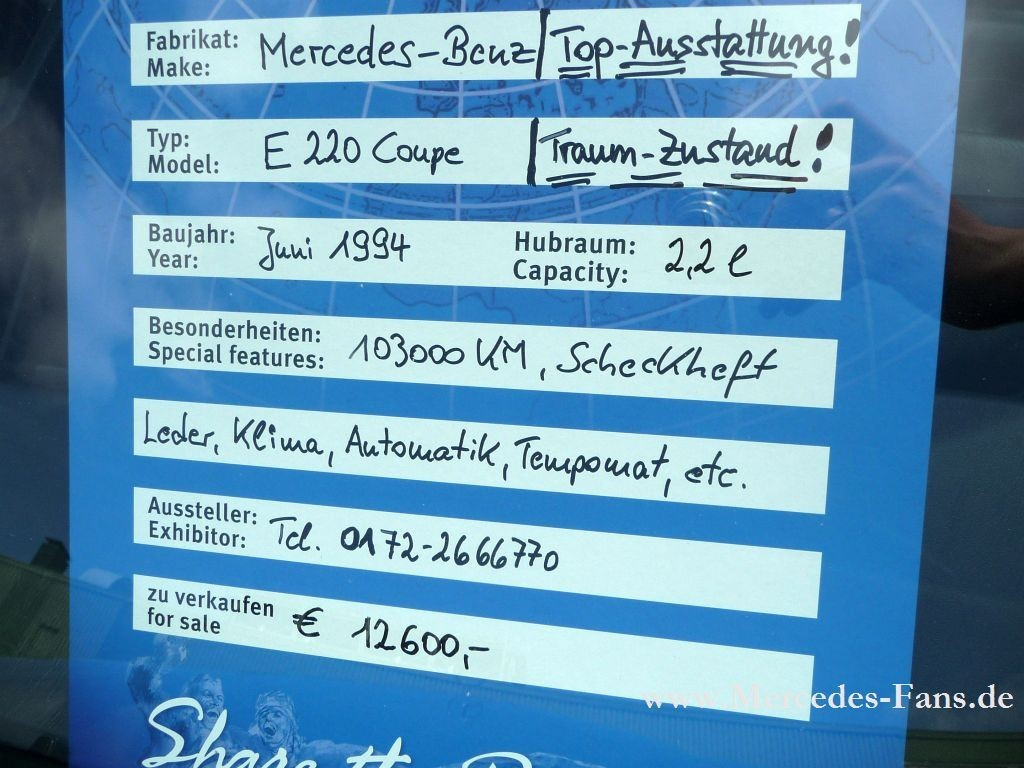 Fabrikat: Mercedes-Benz Top-Ausstattung!
Make:
Typ: E 220 Coupe Traum-Zustand!
Model:
Baujahr: Juni 1994 Hubraum: 2,2 l
Year: Capacity:
Besonderheiten: 103000 KM, Scheckheft
Special features:
Leder, Klima, Automatik, Tempomat, etc.
Aussteller: Tel. 0172-2666770
Exhibitor:
zu verkaufen € 12600,-
for sale
www.Mercedes-Fans.de
Share the